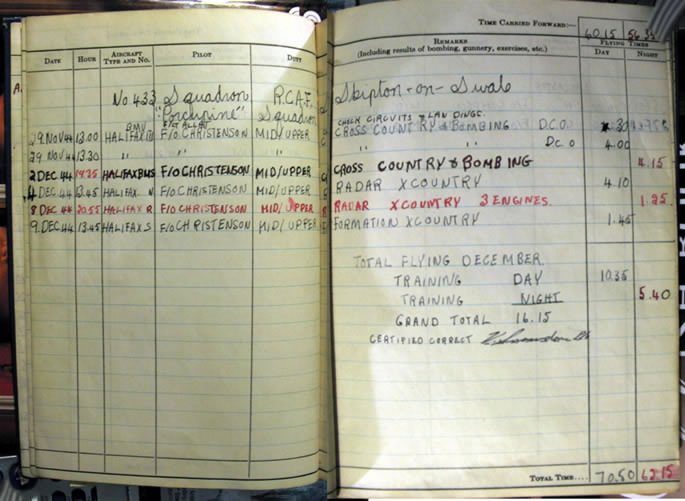 TIME CARRIED FORWARD:— 60.15 56.35
DATE HOUR AIRCRAFT TYPE AND NO. PILOT DUTY
REMARKS (Including results of bombing, gunnery, exercises, etc.) FLYING TIMES DAY NIGHT
No 433 Squadron R.C.A.F. Skipton-on-Swale
"Porcupine" Squadron
CHECK CIRCUITS & LANDINGS
29 NOV 44 13.00 HALIFAX F/O CHRISTENSON MID/UPPER CROSS COUNTRY & BOMBING D.C.O. .30
29 NOV 44 13.30 " " " " D.C.O 4.00
2 DEC 44 HALIFAX F/O CHRISTENSON MID/UPPER CROSS COUNTRY & BOMBING 4.15
4 DEC 44 13.45 HALIFAX F/O CHRISTENSON MID/UPPER RADAR X COUNTRY 4.10
8 DEC 44 20.55 HALIFAX R F/O CHRISTENSON MID/UPPER RADAR X COUNTRY 3 ENGINES. 1.25
9 DEC 44 13.45 HALIFAX S F/O CHRISTENSON MID/UPPER FORMATION X COUNTRY 1.45
TOTAL FLYING DECEMBER.
TRAINING DAY 10.35
TRAINING NIGHT 5.40
GRAND TOTAL 16.15
CERTIFIED CORRECT
TOTAL TIME.... 70.50 62.15